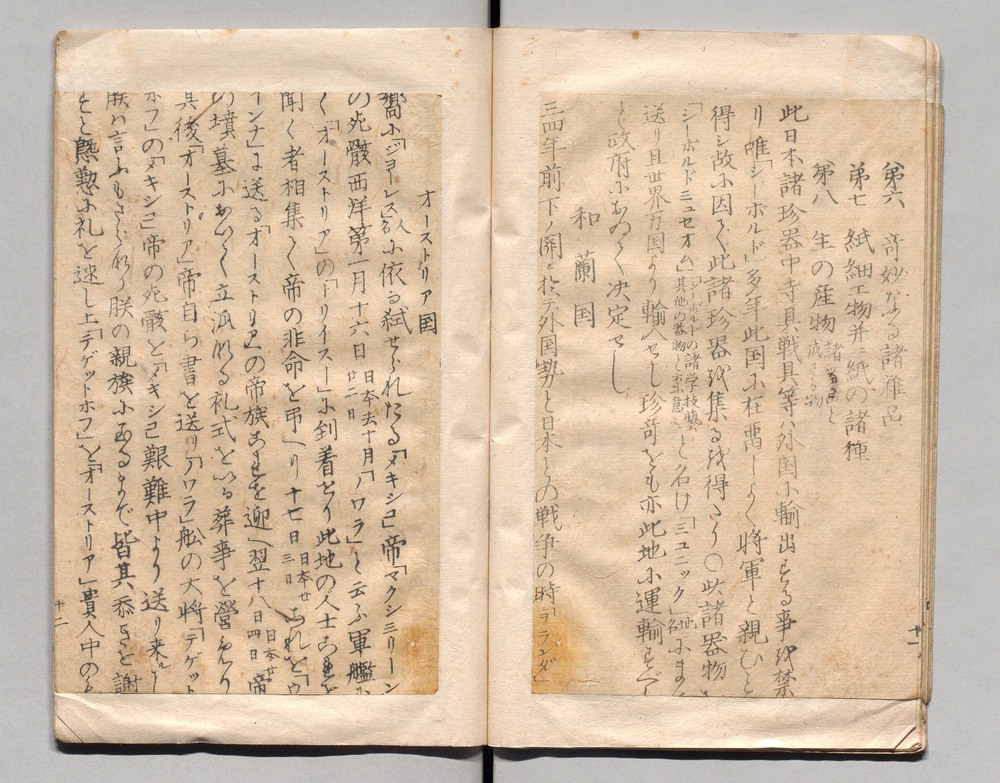 第六 奇妙なる諸雑品
第七 紙細工物并ニ紙の諸種
第八 生の産物 諸品と成さる物
此日本諸珍器中寺具戦具等ハ外国ホ輸出する事を禁
り唯「シーボルド」多年此国ホ在留しよく将軍と親ひと
得シ故ホ因て此諸珍器を集る我得たり〇此諸器物
「シーボルドミュセオム」「シーボルドの諸学技藝其他の器物と云意」と名け「ミユニック」地名ホ
送り且世界万国より輸入せし珍奇をも亦此地ホ運輸すべし
と政府ホおゐて决定せし
和蘭国
三四年前下ノ関ニ於テ外国勢と日本との戦争の時「ヲランダ」
オーストリア国
嚮ホ「ジヨーレス」人名ホ依る弑せられたる「メキシコ」帝「マクシミリーン
の死骸西洋第一月十六日日本去十月廿二日「ノワラ」と云ふ軍艦
く「オーストリア」の「トリイスー」ホ到着せり此地の人士
聞く者相集て帝の非命を弔へり十七日日本廿三日これを「ウ
ンナ」に送る「オーストリア」の帝族これを迎へ翌十八日日本廿四日帝
の墳墓ホおいて立派なる礼式を以る葬事を營めり
其後「オーストリア」帝自ら書を送り「ノワラ」舩の大将「テゲット
ホフ」の「メキシコ」帝の死骸と「メキシコ」艱難中より送り来
朕ハ言ふもさらなり朕の親族ホ至るまで皆其忝さを謝
すと慇懃ホ礼を述し上「テゲットホフ」を「オーストリア」貴人中の
十一
十二